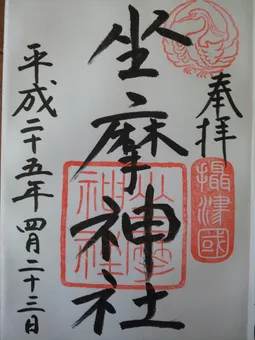 奉拝
攝津國
坐摩神社
坐摩神社
平成二十五年四月二十三日